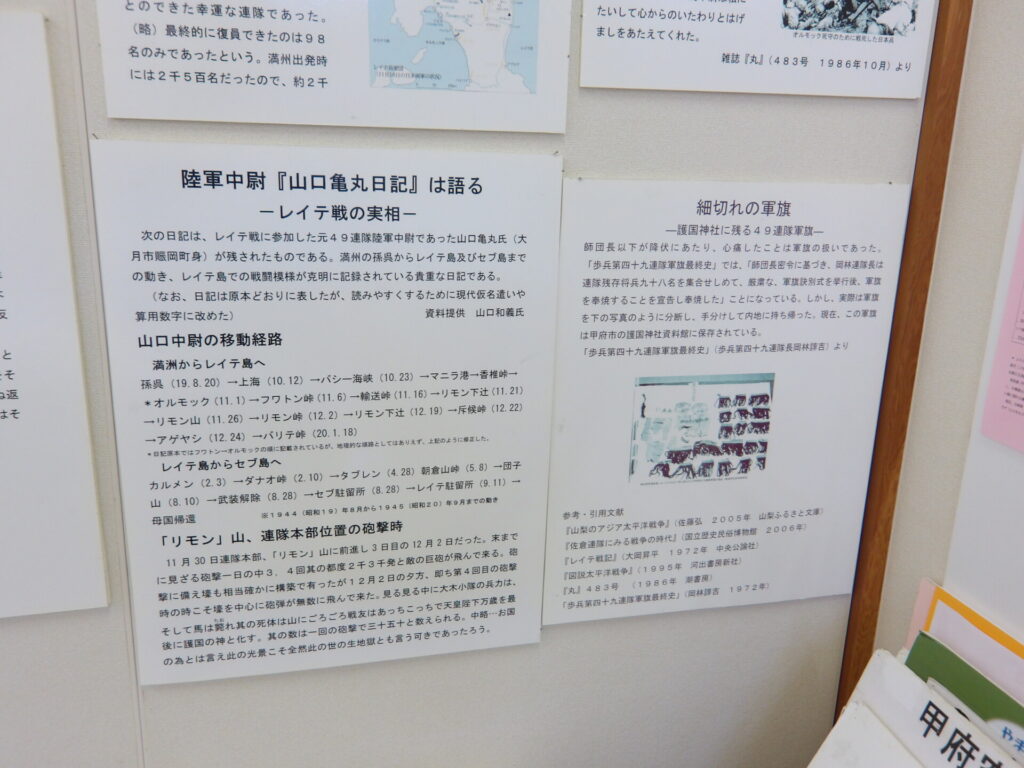 とのできた幸運な連隊であった。
(略)最終的に復員できたのは98
名のみであったという。満州出発時
には2千5百名だったので、約2千
たいして心からのいたわりとはげ
ましをあたえてくれた。
オルモック死守のために戦死した日本兵
雑誌『丸』(483号 1986年10月)より
陸軍中尉『山口亀丸日記』は語る
―レイテ戦の実相―
次の日記は、レイテ戦に参加した元49連隊陸軍中尉であった山口亀丸氏(大
月市賑岡町身)が残されたものである。満州の孫呉からレイテ島及びセブ島まで
の動き、レイテ島での戦闘模様が克明に記録されている貴重な日記である。
(なお、日記は原本どおりに表したが、読みやすくするために現代仮名遣いや
算用数字に改めた) 資料提供 山口和義氏
山口中尉の移動経路
満洲からレイテ島へ
孫呉(19.8.20)→上海(10.12)→バシー海峡(10.23)→マニラ港→香椎峠→
*オルモック(11.1)→フワトン峠(11.6)→輸送峠(11.16)→リモン下辻(11.21)
→リモン山(11.26)→リモン峠(12.2)→リモン下辻(12.19)→斥候峠(12.22)
→アゲヤシ(12.24)→バリテ峠(20.1.18)
*日記原本ではフワトン―オルモックの順に記載されているが、地理的な順路としてはありえず、上記のように修正した。
レイテ島からセブ島へ
カルメン(2.3)→ダナオ峠(2.10)→タブレン(4.28)朝倉山峠(5.8)→団子
山(8.10)→武装解除(8.28)→セブ駐留所(8.28)→レイテ駐留所(9.11)→
母国帰還 ※1944(昭和19)年8月から1945(昭和20)年9月までの動き
「リモン」山、連隊本部位置の砲撃時
11月30日連隊本部、「リモン」山に前進し3日目の12月2日だった。末まで
に見ざる砲撃一日の中3.4回其の都度2千3千発と敵の巨砲が飛んで来る。砲
撃に備え壕も相当確かに構築で有ったが12月2日の夕方、即ち第4回目の砲撃
時の時こそ壕を中心に砲弾が無数に飛んで来た。見る見る中に大木小隊の兵力は、
そして馬は斃れ其の死体は山にごろごろ戦友はあっちこっちで天皇陛下万歳を最
後に護国の神と化す。其の数は一回の砲撃で三十五十と数えられる。中略…お国
の為とは言え此の光景こそ全然此の世の生地獄とも言う可きであったろう。
細切れの軍旗
―護国神社に残る49連隊軍旗―
師団長以下が降伏にあたり、心痛したことは軍旗の扱いであった。
「歩兵第四十九連隊軍旗最終史」では、「師団長密令に基づき、岡林連隊長は
連隊残存将兵九十八名を集合せしめて、厳粛な、軍旗訣別式を挙行後、軍旗
を奉焼することを宣告し奉焼した」ことになっている。しかし、実際は軍旗
を下の写真のように分断し、手分けして内地に持ち帰った。現在、この軍旗
は甲府市の護国神社資料館に保存されている。
「歩兵第四十九連隊軍旗最終史」(歩兵第四十九連隊長岡林諄吉)より
参考・引用文献
『山梨のアジア太平洋戦争』(佐藤弘 2005年 山梨ふるさと文庫)
『佐倉連隊にみる戦争の時代』(国立歴史民俗博物館 2006年)
『レイテ戦記』(大岡昇平 1972年 中央公論社)
『図説太平洋戦争』(1995年 河出書房新社)
『丸』483号 (1986年 潮書房)
「歩兵第四十九連隊軍旗最終史」(岡林諄吉 1972年)
甲府